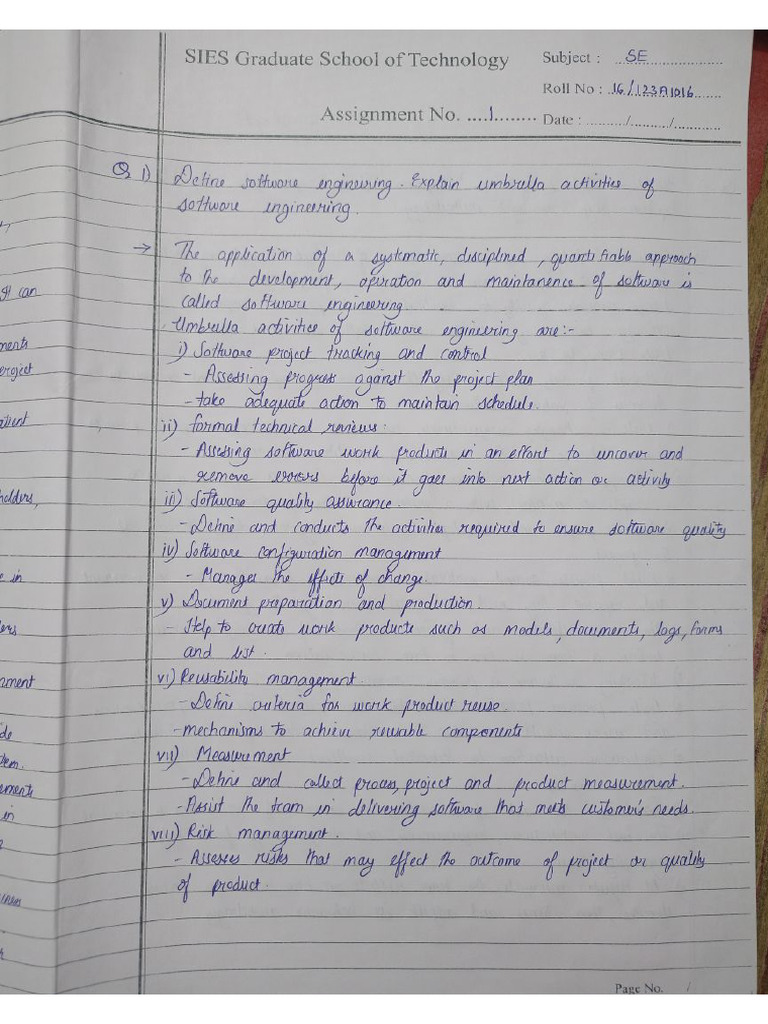 SIES Graduate School of Technology
Subject : SE
Roll No : 16/123A1016
Assignment No. 1
Date : ......./........./............
Q 1) Define software engineering. Explain umbrella activities of
software engineering.
→ The application of a systematic, disciplined, quantifiable approach
to the development, operation and maintanence of software is
called software engineering.
Umbrella activities of software engineering are:-
i) Software project tracking and control
- Assessing progress against the project plan
- take adequate action to maintain schedule.
ii) formal technical reviews:
- Assessing software work products in an effort to uncover and
remove errors before it goes into next action or activity
iii) Software quality assurance.
- Define and conducts the activities required to ensure software quality
iv) Software configuration management
- Manages the effects of change.
v) Document preparation and production.
- Help to create work products such as models, documents, logs, forms
and list.
vi) Reusability management.
- Define criteria for work product reuse.
- mechanisms to achieve reusable components
vii) Measurement
- Define and collect process, project and product measurement.
- Assist the team in delivering software that meets customer's needs.
viii) Risk management.
- Assesses risks that may effect the outcome of project or quality
of product.
Page No. /
It can
ments
project
atient
holders,
e in
ments
in